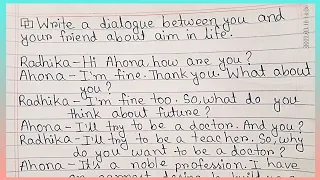 Write a dialogue between you and
your friend about aim in life.
Radhika-Hi Ahona, how are you?
Ahona-I'm fine. Thank you. What about
you?
Radhika-I'm fine too. So, what do you
think about future?
Ahona-I'll try to be a doctor. And you?
Radhika-I'll try to be a teacher. So, why
do you want to be a doctor?
Ahona-It's a noble profession. I have
an earnest desire to build up